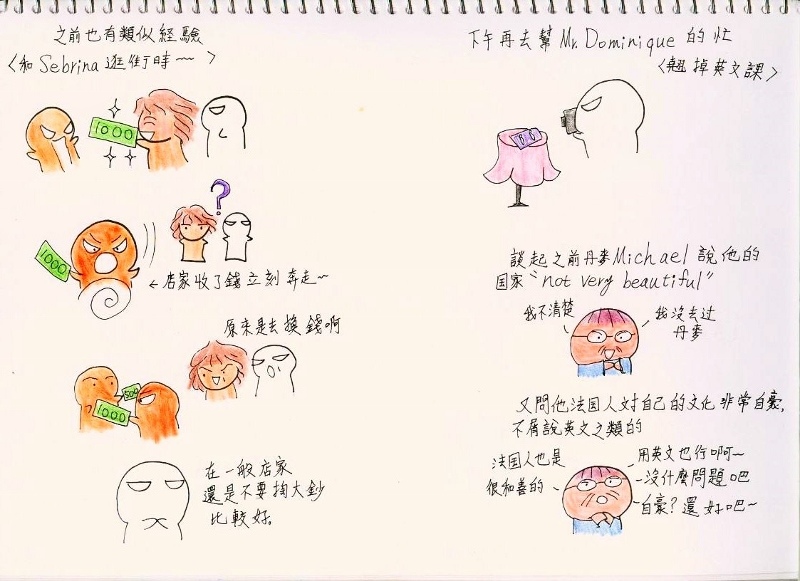 之前也有類似經驗
<和Sebrina逛街時~~>
1000
?
1000
←店家收了錢立刻奔走~
原來是去換錢啊
500
1000
在一般店家
還是不要掏大鈔
比較好。
下午再去幫Mr. Dominique的忙
<翹掉英文課>
談起之前丹麥Michael說他的
国家"not very beautiful"
我不清楚
我沒去过
丹麥
又問他法国人对自己的文化非常自豪,
不屑說英文之類的
法国人也是
很和善的
用英文也行啊~
沒什麼問題吧
自豪?還好吧~